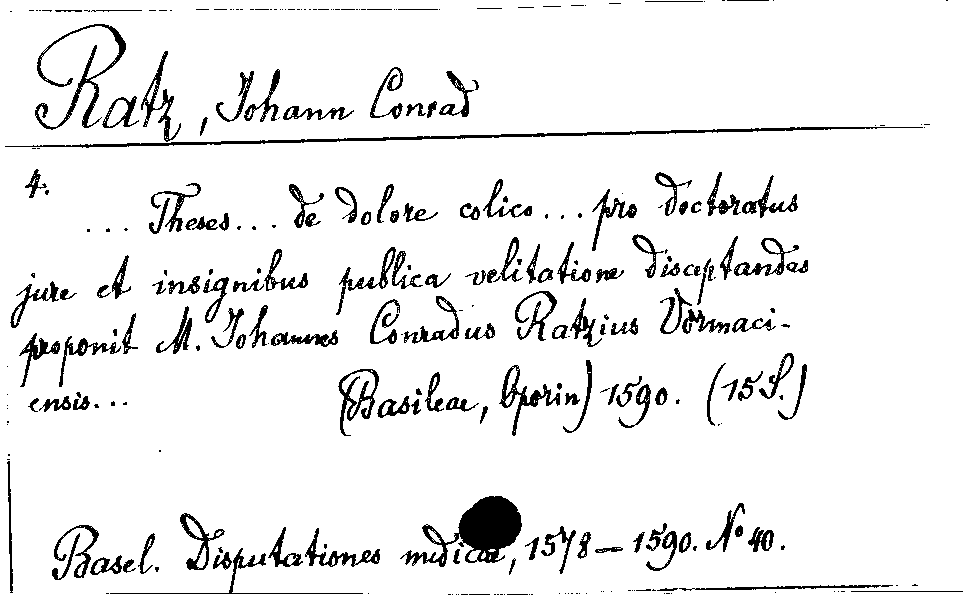 Ratz, Johann Conrad
4.
... Theses... de dolore colico... pro doctoratus
jure et insignibus publica velitatione disceptandas
proponit M. Johannes Conradus Ratzius Vormaci-
ensis...
(Basileae, Oporin) 1590. (15 S.)
Basel. Disputationes medicae, 1578-1590. No 40.